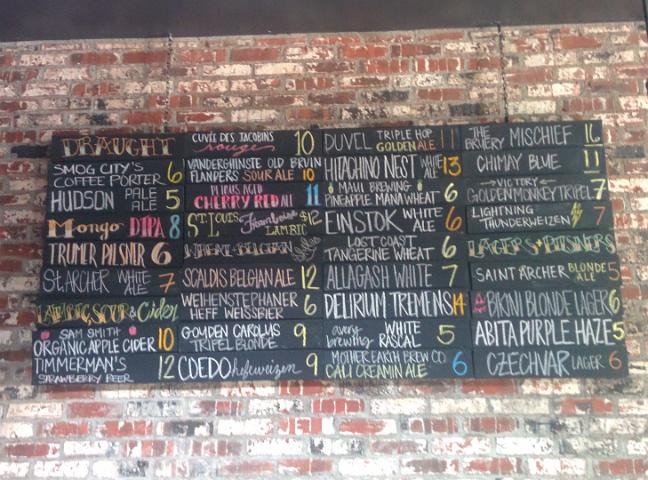 DRAUGHT
SMOG CITY'S
COFFEE PORTER 6
HUDSON PALE
ALE 5
MONGO DIPA 8
TRUMER PILSNER 6
ST. ARCHER WHITE
ALE 7
LAMBIC, SOUR & Cider
SAM SMITH
ORGANIC APPLE CIDER 10
TIMMERMAN'S
STRAWBERRY BEER 12
CUVÉE DES JACOBINS
rouge 10
VANDERGHINSTE OLD BRUIN
FLANDERS SOUR ALE 10
CHERRY RED 11
ST. LOUIS Framboise $12
LAMBIC
WHEAT + BELGIAN
SCALDIS BELGIAN ALE 12
WEIHENSTEPHANER
HEFF WEISSBIER 6
GOUDEN CAROLUS
TRIPEL BLONDE 9
COEDO hefeweizen 9
DUVEL TRIPLE HOP
GOLDEN ALE 11
HITACHINO NEST WHITE
ALE 13
MAUI BREWING
PINEAPPLE MANA WHEAT 6
EINSTOK WHITE
ALE 6
LOST COAST
TANGERINE WHEAT 6
ALLAGASH WHITE 7
DELIRIUM TREMENS 14
avery
brewing WHITE
RASCAL 5
MOTHER EARTH BREW CO.
CALI CREAMIN ALE 6
THE
BRUERY MISCHIEF 16
CHIMAY BLUE 11
VICTORY
GOLDEN MONKEY TRIPEL 7
LIGHTNING
THUNDERWEIZEN 7
LAGERS + PILSNERS
SAINT ARCHER BLONDE
ALE 5
BIKINI BLONDE LAGER 6
ABITA PURPLE HAZE 5
CZECHVAR LAGER 6